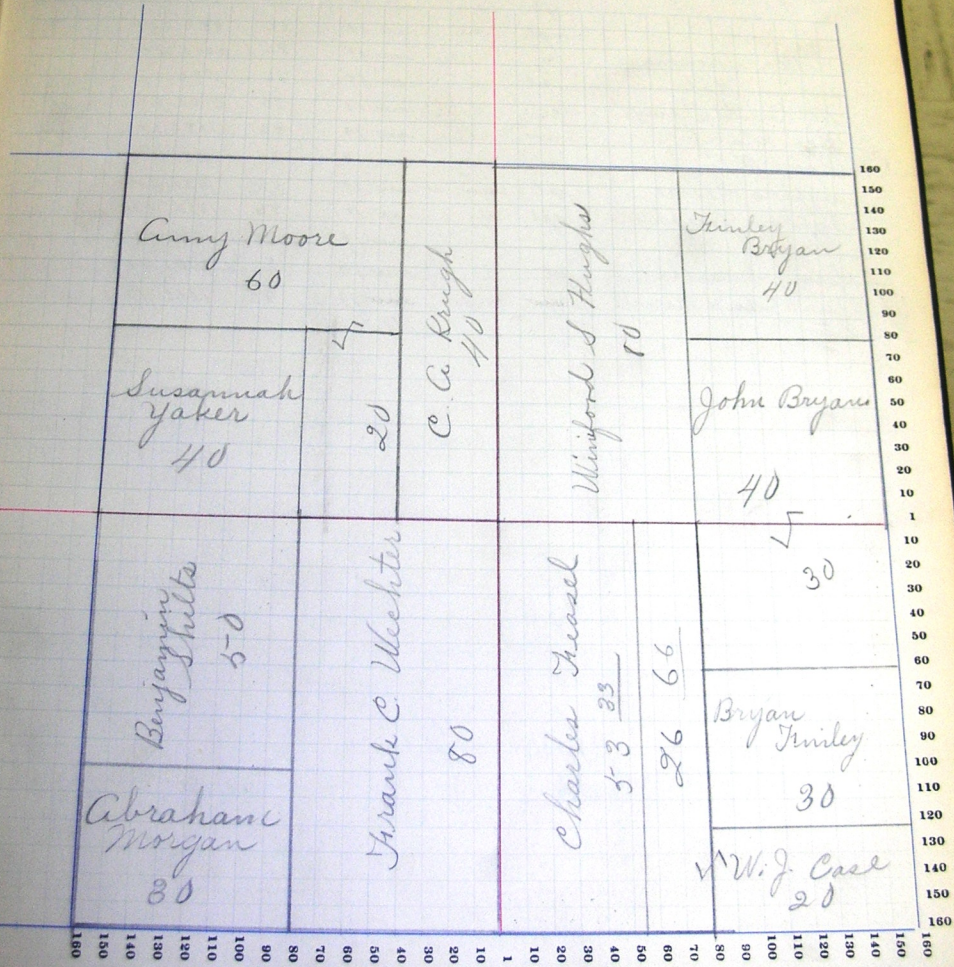 Amy Moore
60
Susannah
Yaker
40
20
C. A. Krugh
40
Winford S Hughs
80
Finley
Bryan
40
John Bryan
40
Benjamin
Shilts
50
Abraham
Morgan
30
Frank C. Wechter
80
Charles Feasel
53 33
26 66
30
Bryan
Finley
30
W. J. Case
20
160
150
140
130
120
110
100
90
80
70
60
50
40
30
20
10
1
10
20
30
40
50
60
70
80
90
100
110
120
130
140
150
160
160 150 140 130 120 110 100 90 80 70 60 50 40 30 20 10 1 10 20 30 40 50 60 70 80 90 100 110 120 130 140 150 160